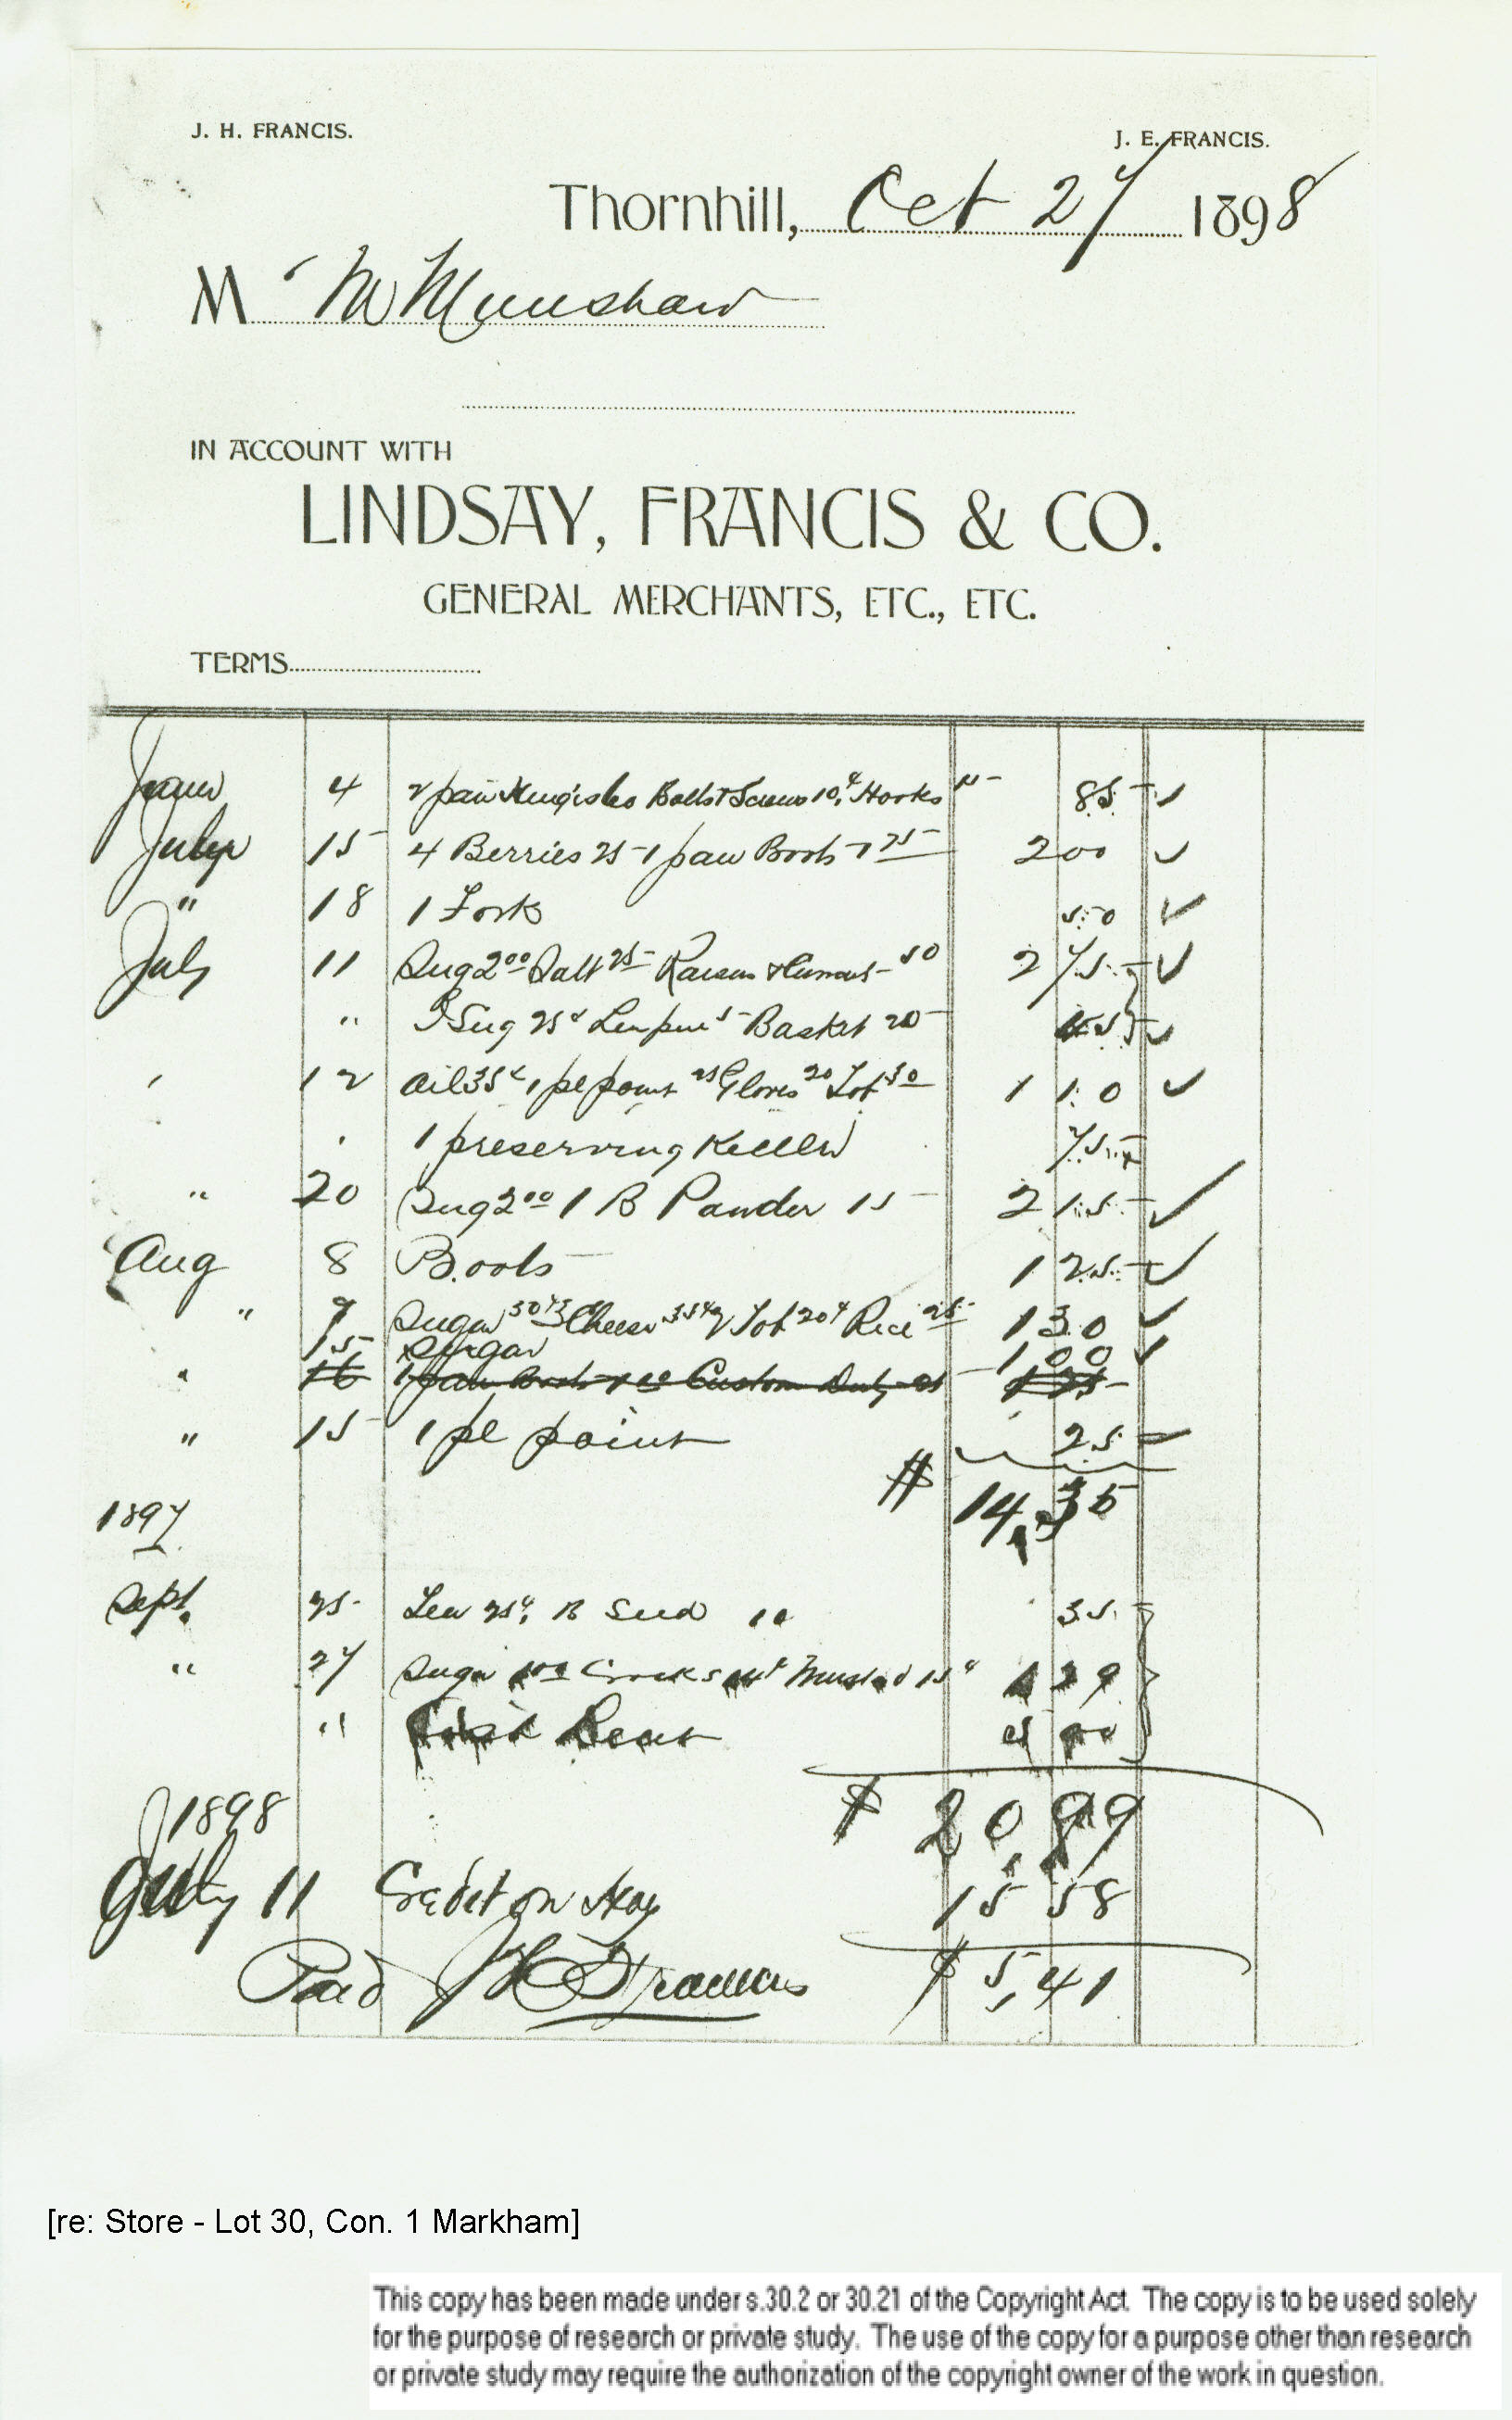 J. H. FRANCIS. J. E. FRANCIS.
Thornhill, Oct 27 1898
Mr W Munshaw
IN ACCOUNT WITH
LINDSAY, FRANCIS & CO.
GENERAL MERCHANTS, ETC., ETC.
TERMS
4 2 pair Bolts & Screws 10¢ Hooks 85
July 15 4 Berries 25 1 pair Boots 1 75 2 00
" 18 1 Fork 50
July 11 Sug 2 00 Salt 25 50 2 75
" Sug 25¢ Basket 20
12 Oil 35¢ 1 pl point 25 Gloves 20 30 1 10
1 preserving Kettle 75
" 20 Sug 2 00 1 B Powder 15 2 15
Aug 8 Boots 1 25
" 9 Sugar 50 Cheese 20¢ Rice 25 1 30
15 Sugar 1 00
" 16 1 pair Boots 1 00 Custom Duty 25 1 25
" 15 1 pl point 25
$ 14.35
1897
Sept. 25 Tea 25¢ B Seed 10 35
" 27 Sugar 1 00 Crocks 14¢ Mustard 15¢ 1 29
"
$ 20.99
1898
July 11 Credit on Hay 15 58
Paid J H Francis $ 5.41
[re: Store - Lot 30, Con. 1 Markham]
This copy has been made under s.30.2 or 30.21 of the Copyright Act. The copy is to be used solely
for the purpose of research or private study. The use of the copy for a purpose other than research
or private study may require the authorization of the copyright owner of the work in question.